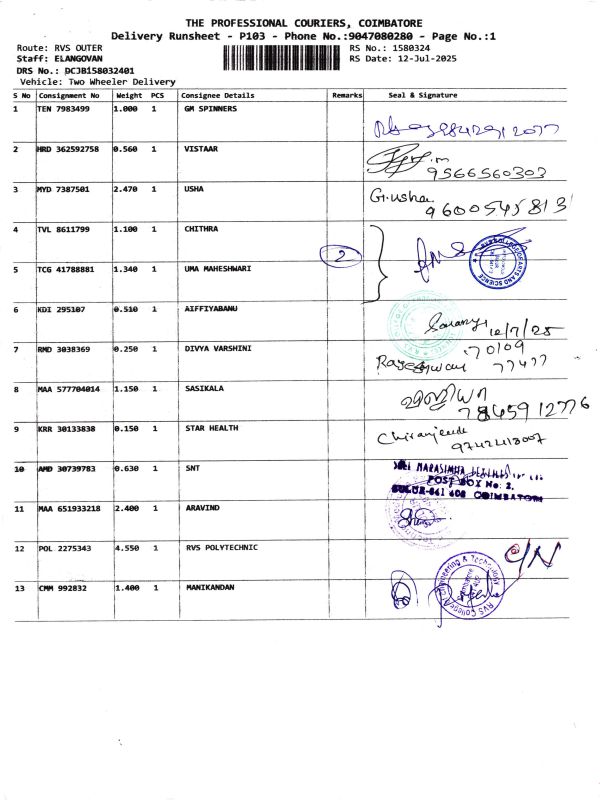 THE PROFESSIONAL COURIERS, COIMBATORE
Delivery Runsheet - P103 - Phone No.:9047080280 - Page No.:1
Route: RVS OUTER
RS No.: 1580324
Staff: ELANGOVAN
RS Date: 12-Jul-2025
DRS No.: DCJB158032401
Vehicle: Two Wheeler Delivery
S No Consignment No Weight PCS Consignee Details Remarks Seal & Signature
1 TEN 7983499 1.000 1 GM SPINNERS
2 HRD 362592758 0.560 1 VISTAAR
9566560303
3 MYD 7387501 2.470 1 USHA G.usha
9600545813
4 TVL 8611799 1.100 1 CHITHRA
2
ARTS AND SCIENCE
5 TCG 41788881 1.340 1 UMA MAHESHWARI
6 KDI 295107 0.510 1 AIFFIYABANU
12/7/25
7 RMD 3038369 0.250 1 DIVYA VARSHINI 70109
77477
8 MAA 577704014 1.150 1 SASIKALA
7845912776
9 KRR 30133838 0.150 1 STAR HEALTH
10 AMD 30739783 0.630 1 SNT
POST BOX No: 2,
SULUR-641 402 COIMBATORE
11 MAA 651933218 2.400 1 ARAVIND
12 POL 2275343 4.550 1 RVS POLYTECHNIC
13 CMM 992832 1.400 1 MANIKANDAN
RVS College of Engineering & Technology